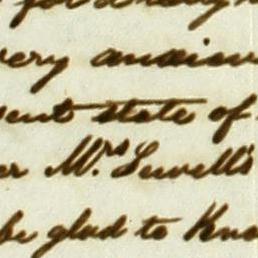 very anxious
sent state of
er Mrs Lewell's
be glad to Know